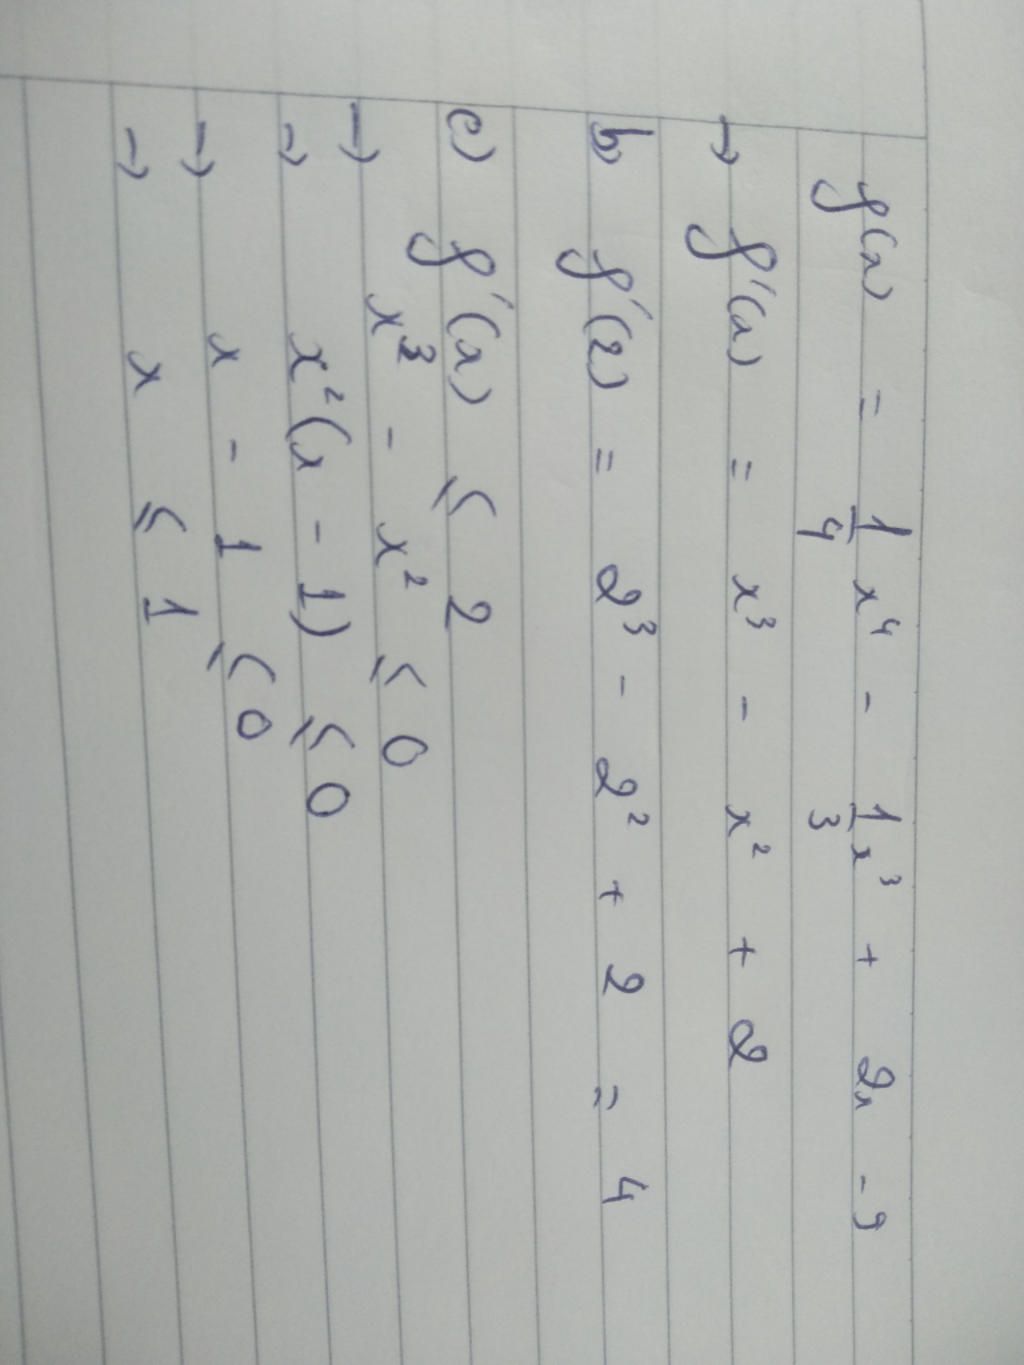 f(x) = 1/4 x⁴ - 1/3 x³ + 2x - 9
→ f'(x) = x³ - x² + 2
b) f'(2) = 2³ - 2² + 2 = 4
c) f'(x) ≤ 2
→ x³ - x² ≤ 0
→ x²(x - 1) ≤ 0
→ x - 1 ≤ 0
→ x ≤ 1